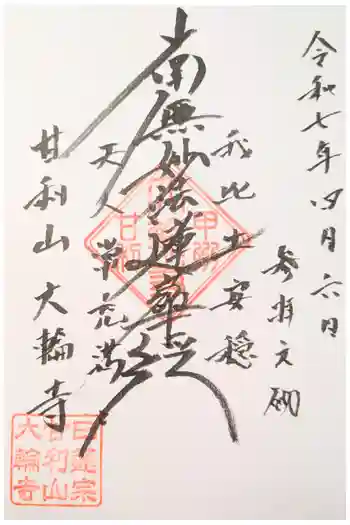 令和七年四月六日
参拝之砌
我此土安穏
南無妙法蓮華経
天人常充満
甘利山大輪寺
甲州
甘利
日蓮宗
甘利山
大輪寺